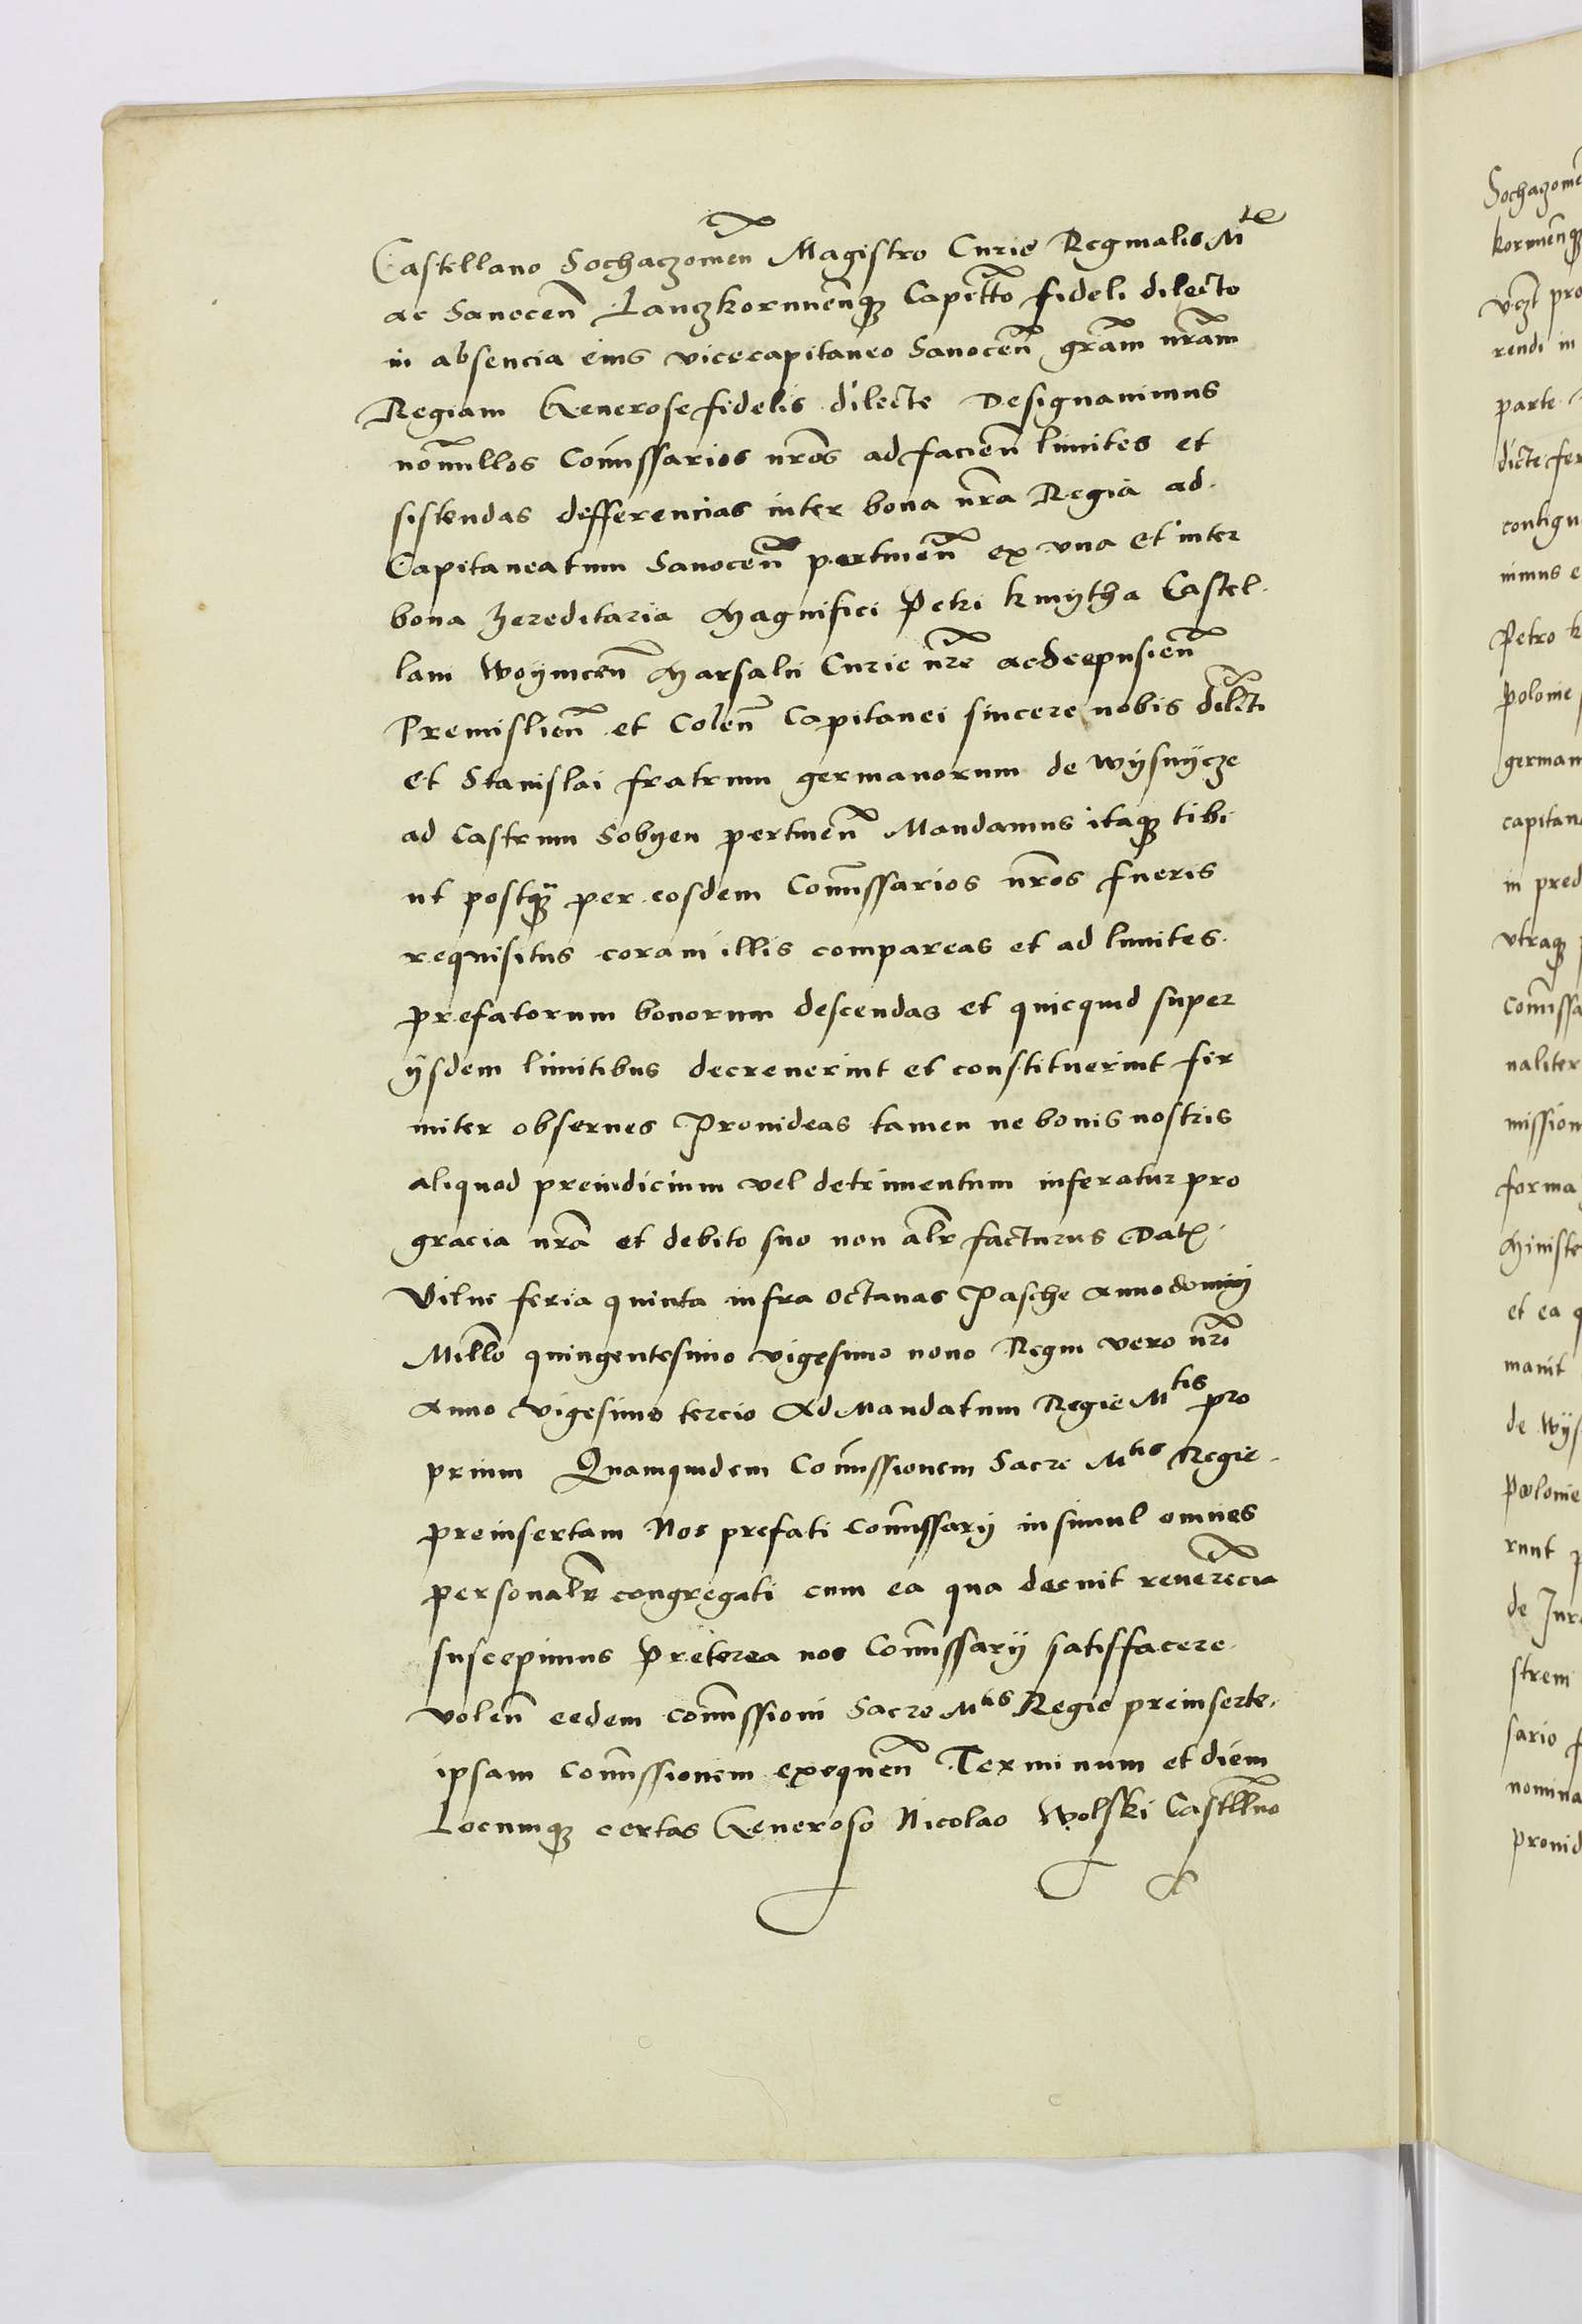 Castellano Sochaczomen̄ Magistro Curie Regmalis Mte
ac Sanocen̄ Lanczkorunen̄q; Capit̄to fideli dilecto
in absencia eius vicecapitaneo Sanocen̄ gr̄am nr̄am
Regiam Generose fidelis dilecte Designauimus
nōnullos Com̄issarios nr̄os ad facien̄ limites et
sistendas defferencias inter bona nr̄a Regia ad
Capitaneatum Sanocen̄ pertinen̄ ex vna et inter
bona hereditaria Magnifici Petri kmytha Castel
lani Woynicen̄ Marsalci Curie nr̄e ac Scepusien̄
Premislien̄ et Colen̄ Capitanei sincere nobis dil̄cti
et Stanislai fratrum germanorum de wysnycze
ad Castrum Sobyen pertinen̄ Mandamus itaq; tibi
ut postq̄; per eosdem Com̄issarios nr̄os fueris
requisitus coram illis compareas et ad limites
prefatorum bonorum descendas et quicquid super
ijsdem limitibus decreuerint et constituerint fir
miter obserues Prouideas tamen ne bonis nostris
aliquod preiudicium vel detrimentum inferatur pro
gracia nr̄a et debito suo non alr̄ facturus Dat
Vilne feria quinta infra octauas Pasche Anno dominij
Mill̄o quingentesimo vigesimo nono Regni vero nr̄i
Anno vigesimo tercio Ad Mandatum Regie Mtis pro
prium Quamquidem Com̄issionem Sacre Mtis Regie
preinsertam Nos prefati Com̄issarij insimul omnes
personalr̄ congregati cum ea qua decuit reuerēcia
suscepimus Preterea nos Com̄issarij satisfacere
volen̄ eedem com̄issioni Sacre Mtis Regie preinserte
ipsam Com̄issionem exequen̄ Terminum et diem
Locumq; certas Generoso Nicolao Wolski Castell̄no
Sochaczome
kornnen̄q;
vc̄zt pro
rendi in
parte
dicte fer
contigu
nimus e
Petro k
polonie
german
capitane
in pred
vtraq;
Com̄issa
naliter
mission
forma
Ministe
et ea q
manit
de wys
Polonie
runt p
de Jure
strem
sario f
nomina
prouid